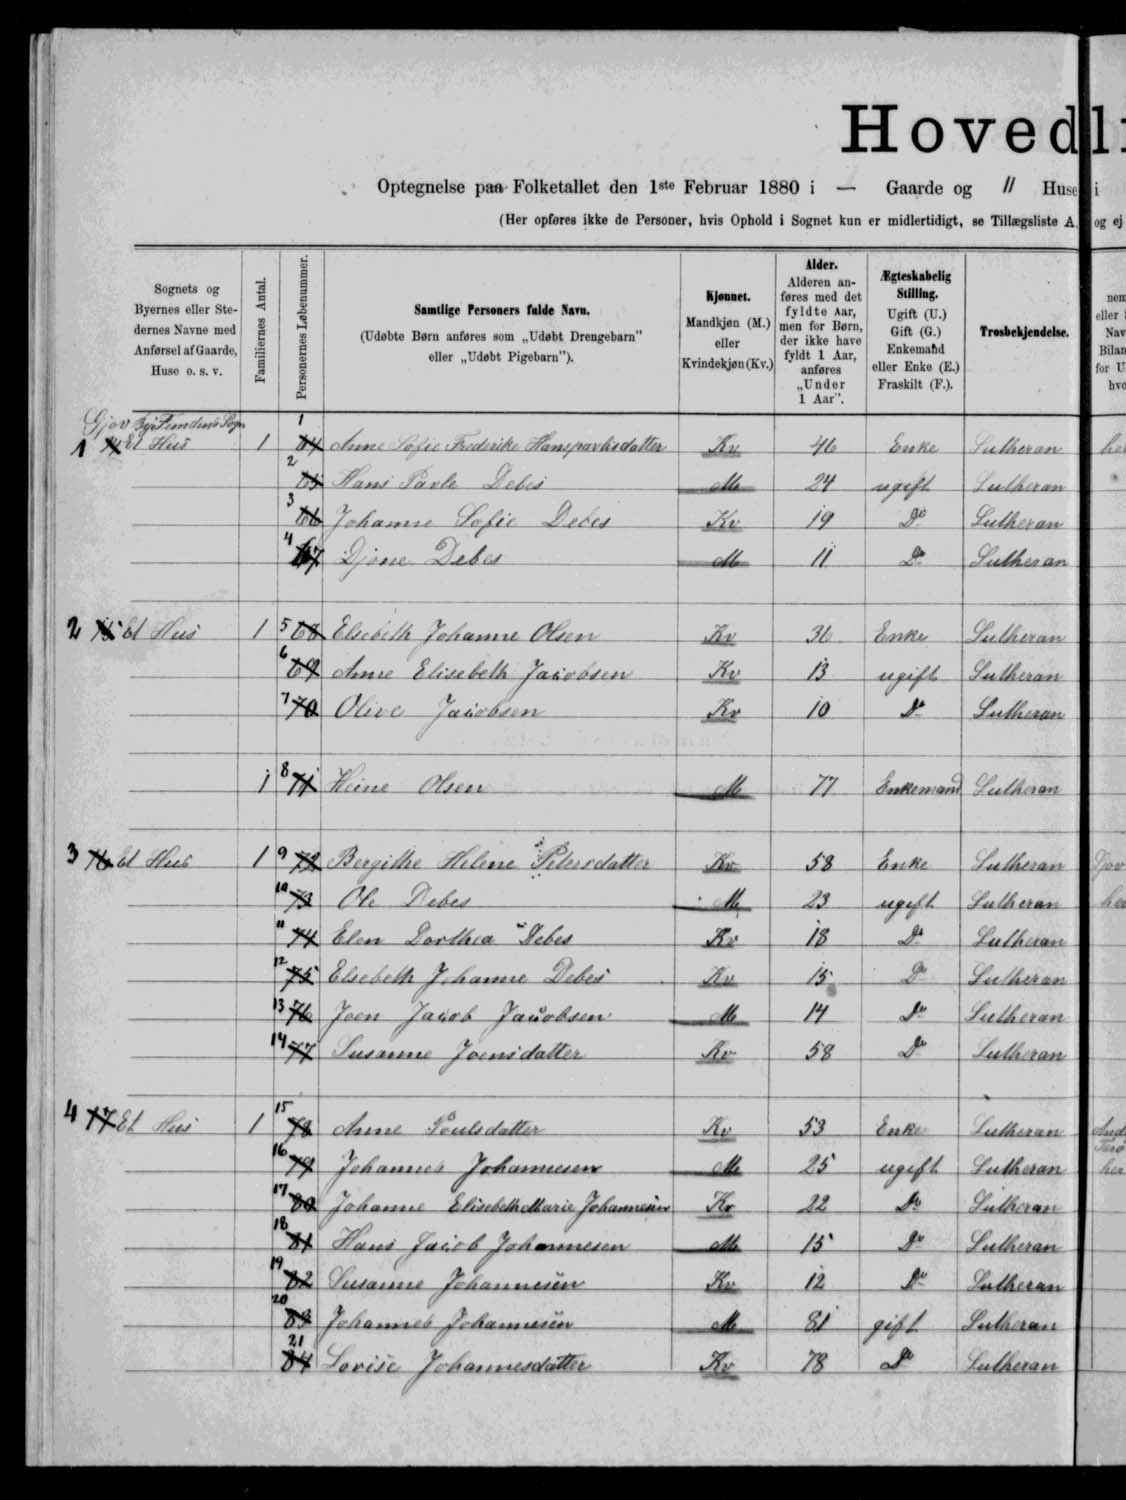 Hovedli
Optegnelse paa Folketallet den 1ste Februar 1880 i — Gaarde og 11 Huse i
(Her opføres ikke de Personer, hvis Ophold i Sognet kun er midlertidigt, se Tillægsliste A, og ej
Sognets og Byernes eller Stedernes Navne med Anførsel af Gaarde, Huse o. s. v.
Familiernes Antal.
Personernes Løbenummer.
Samtlige Personers fulde Navn.
(Udøbte Børn anføres som „Udøbt Drengebarn"
eller „Udøbt Pigebarn").
Kjønnet.
Mandkjøn (M.)
eller
Kvindekjøn (Kv.)
Alder.
Alderen anføres med det fyldte Aar, men for Børn, der ikke have fyldt 1 Aar, anføres „Under 1 Aar".
Ægteskabelig Stilling.
Ugift (U.)
Gift (G.)
Enkemand eller Enke (E.)
Fraskilt (F.).
Trosbekjendelse.
Gjov
1 14 Et Hus 1 1 64 Anne Sofie Frederike Hanspavlsdatter Kv 46 Enke Lutheran her
2 65 Hans Pavle Debes M 24 ugift Lutheran
3 66 Johanne Sofie Debes Kv 19 Do Lutheran
4 67 Djone Debes M 11 Do Lutheran
2 15 Et Hus 1 5 68 Elsebeth Johanne Olsen Kv 36 Enke Lutheran
6 69 Anne Elisebeth Jacobsen Kv 13 ugift Lutheran
7 70 Olive Jacobsen Kv 10 Do Lutheran
1 8 71 Heine Olsen M 77 Enkemand Lutheran
3 16 Et Hus 1 9 72 Bergithe Helene Petersdatter Kv 58 Enke Lutheran Gjov
10 73 Ole Debes M 23 ugift Lutheran her
11 74 Elen Dorthea Debes Kv 18 Do Lutheran
12 75 Elsebeth Johanne Debes Kv 15 Do Lutheran
13 76 Joen Jacob Jacobsen M 14 Do Lutheran
14 77 Susanne Joensdatter Kv 58 Do Lutheran
4 17 Et Hus 1 15 78 Anne Poulsdatter Kv 53 Enke Lutheran
16 79 Johannes Johannesen M 25 ugift Lutheran her
17 80 Johanne Elisebeth Marie Johannesen Kv 22 Do Lutheran
18 81 Hans Jacob Johannesen M 15 Do Lutheran
19 82 Susanne Johannesen Kv 12 Do Lutheran
20 83 Johannes Johannesen M 81 gift Lutheran
21 84 Lovise Johannesdatter Kv 78 Do Lutheran